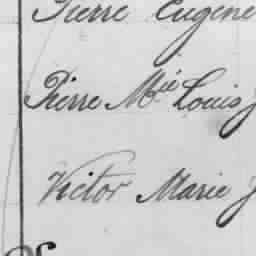 Pierre Eugène
Pierre Mie Louis
Victor Marie